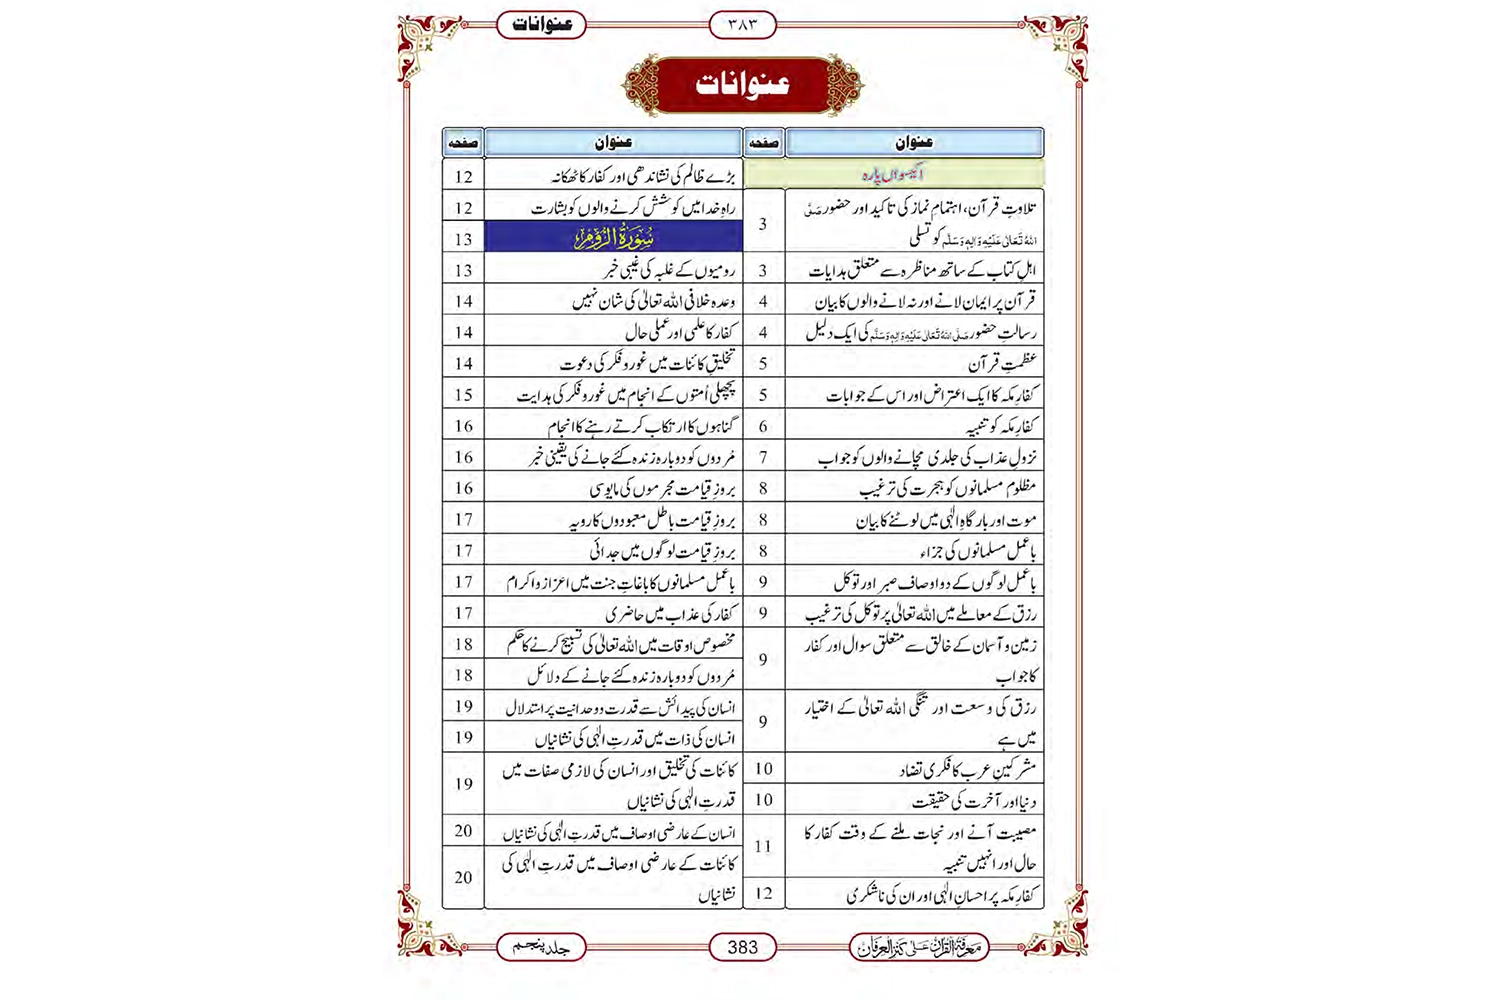 عنوانات
۳۸۳
عنوانات
عنوان
صفحہ
عنوان
صفحہ
اکیسواں پارہ
تلاوتِ قرآن، اہتمامِ نماز کی تاکید اور حضور صَلَّی
اللہُ تَعَالٰی عَلَیْہِ وَاٰلِہٖ وَسَلَّم کو تسلی
3
اہلِ کتاب کے ساتھ مناظرہ سے متعلق ہدایات
3
قرآن پر ایمان لانے اور نہ لانے والوں کا بیان
4
رسالتِ حضور صَلَّی اللہُ تَعَالٰی عَلَیْہِ وَاٰلِہٖ وَسَلَّم کی ایک دلیل
4
عظمتِ قرآن
5
کفارِ مکہ کا ایک اعتراض اور اس کے جوابات
5
کفارِ مکہ کو تنبیہ
6
نزولِ عذاب کی جلدی مچانے والوں کو جواب
7
مظلوم مسلمانوں کو ہجرت کی ترغیب
8
موت اور بارگاہِ الٰہی میں لوٹنے کا بیان
8
باعمل مسلمانوں کی جزاء
8
باعمل لوگوں کے دو اوصاف صبر اور توکل
9
رزق کے معاملے میں اللہ تعالیٰ پر توکل کی ترغیب
9
زمین و آسمان کے خالق سے متعلق سوال اور کفار
کا جواب
9
رزق کی وسعت اور تنگی اللہ تعالیٰ کے اختیار
میں ہے
9
مشرکینِ عرب کا فکری تضاد
10
دنیا اور آخرت کی حقیقت
10
مصیبت آنے اور نجات ملنے کے وقت کفار کا
حال اور انہیں تنبیہ
11
کفارِ مکہ پر احسانِ الٰہی اور ان کی ناشکری
12
بڑے ظالم کی نشاندھی اور کفار کا ٹھکانہ
12
راہِ خدا میں کوشش کرنے والوں کو بشارت
12
سُوْرَةُ الرُّوْم
13
رومیوں کے غلبہ کی غیبی خبر
13
وعدہ خلافی اللہ تعالیٰ کی شان نہیں
14
کفار کا علمی اور عملی حال
14
تخلیقِ کائنات میں غور و فکر کی دعوت
14
پچھلی اُمتوں کے انجام میں غور و فکر کی ہدایت
15
گناہوں کا ارتکاب کرتے رہنے کا انجام
16
مُردوں کو دوبارہ زندہ کئے جانے کی یقینی خبر
16
بروزِ قیامت مجرموں کی مایوسی
16
بروزِ قیامت باطل معبودوں کا رویہ
17
بروزِ قیامت لوگوں میں جدائی
17
باعمل مسلمانوں کا باغاتِ جنت میں اعزاز و اکرام
17
کفار کی عذاب میں حاضری
17
مخصوص اوقات میں اللہ تعالیٰ کی تسبیح کرنے کا حکم
18
مُردوں کو دوبارہ زندہ کئے جانے کے دلائل
18
انسان کی پیدائش سے قدرت و وحدانیت پر استدلال
19
انسان کی ذات میں قدرتِ الٰہی کی نشانیاں
19
کائنات کی تخلیق اور انسان کی لازمی صفات میں
قدرتِ الٰہی کی نشانیاں
19
انسان کے عارضی اوصاف میں قدرتِ الٰہی کی نشانیاں
20
کائنات کے عارضی اوصاف میں قدرتِ الٰہی کی
نشانیاں
20
معرفۃ القرآن علٰی کنز العرفان
383
جلد پنجم